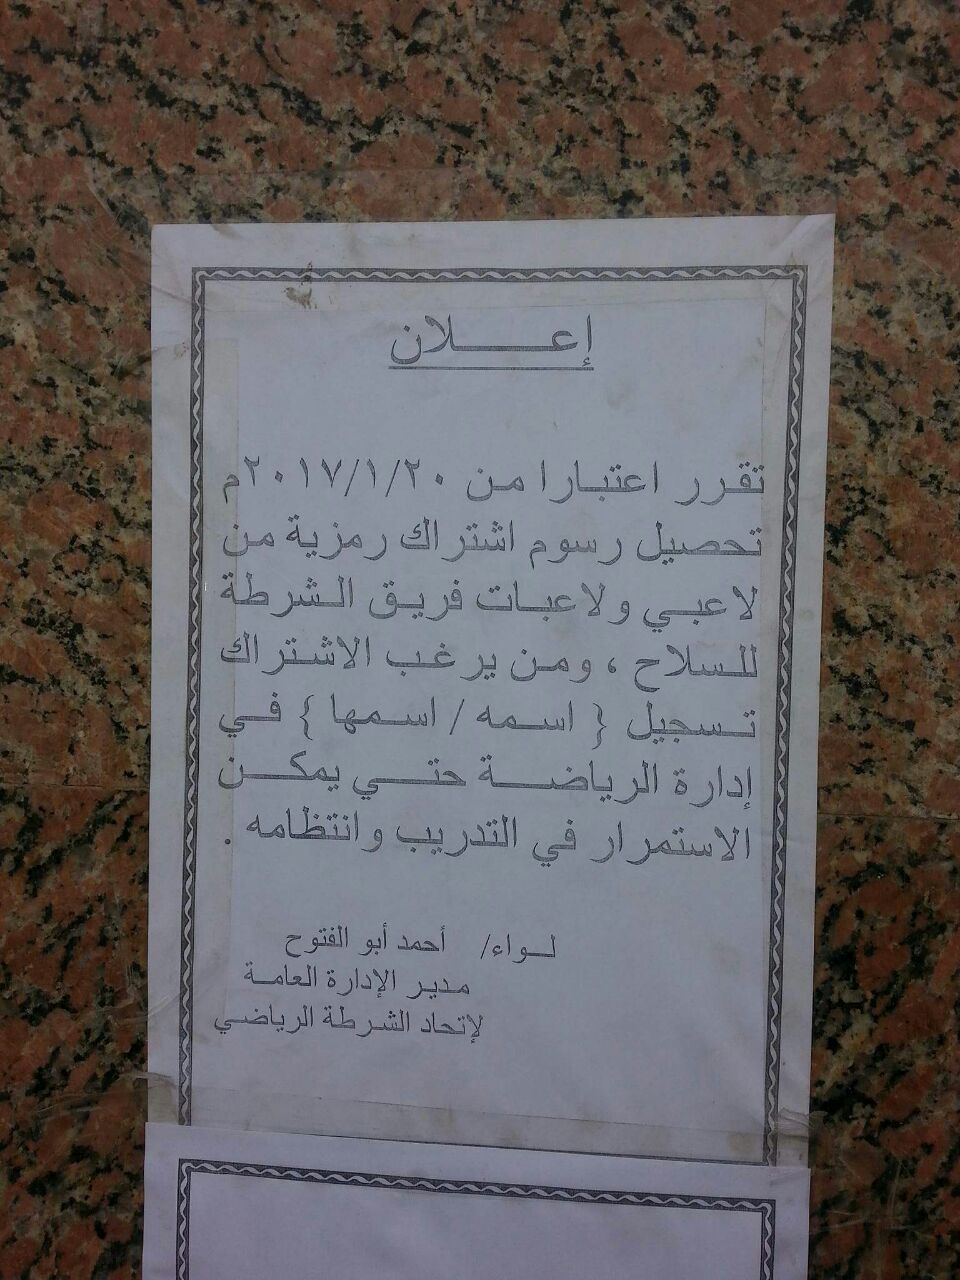 إعلان
تقرر اعتبارا من ٢٠١٧/١/٢٠م
تحصيل رسوم اشتراك رمزية من
لاعبي ولاعبات فريق الشرطة
للسلاح ، ومن يرغب الاشتراك
تسجيل { اسمه / اسمها } في
إدارة الرياضة حتي يمكن
الاستمرار في التدريب وانتظامه .
لواء/ أحمد أبو الفتوح
مدير الإدارة العامة
لإتحاد الشرطة الرياضي